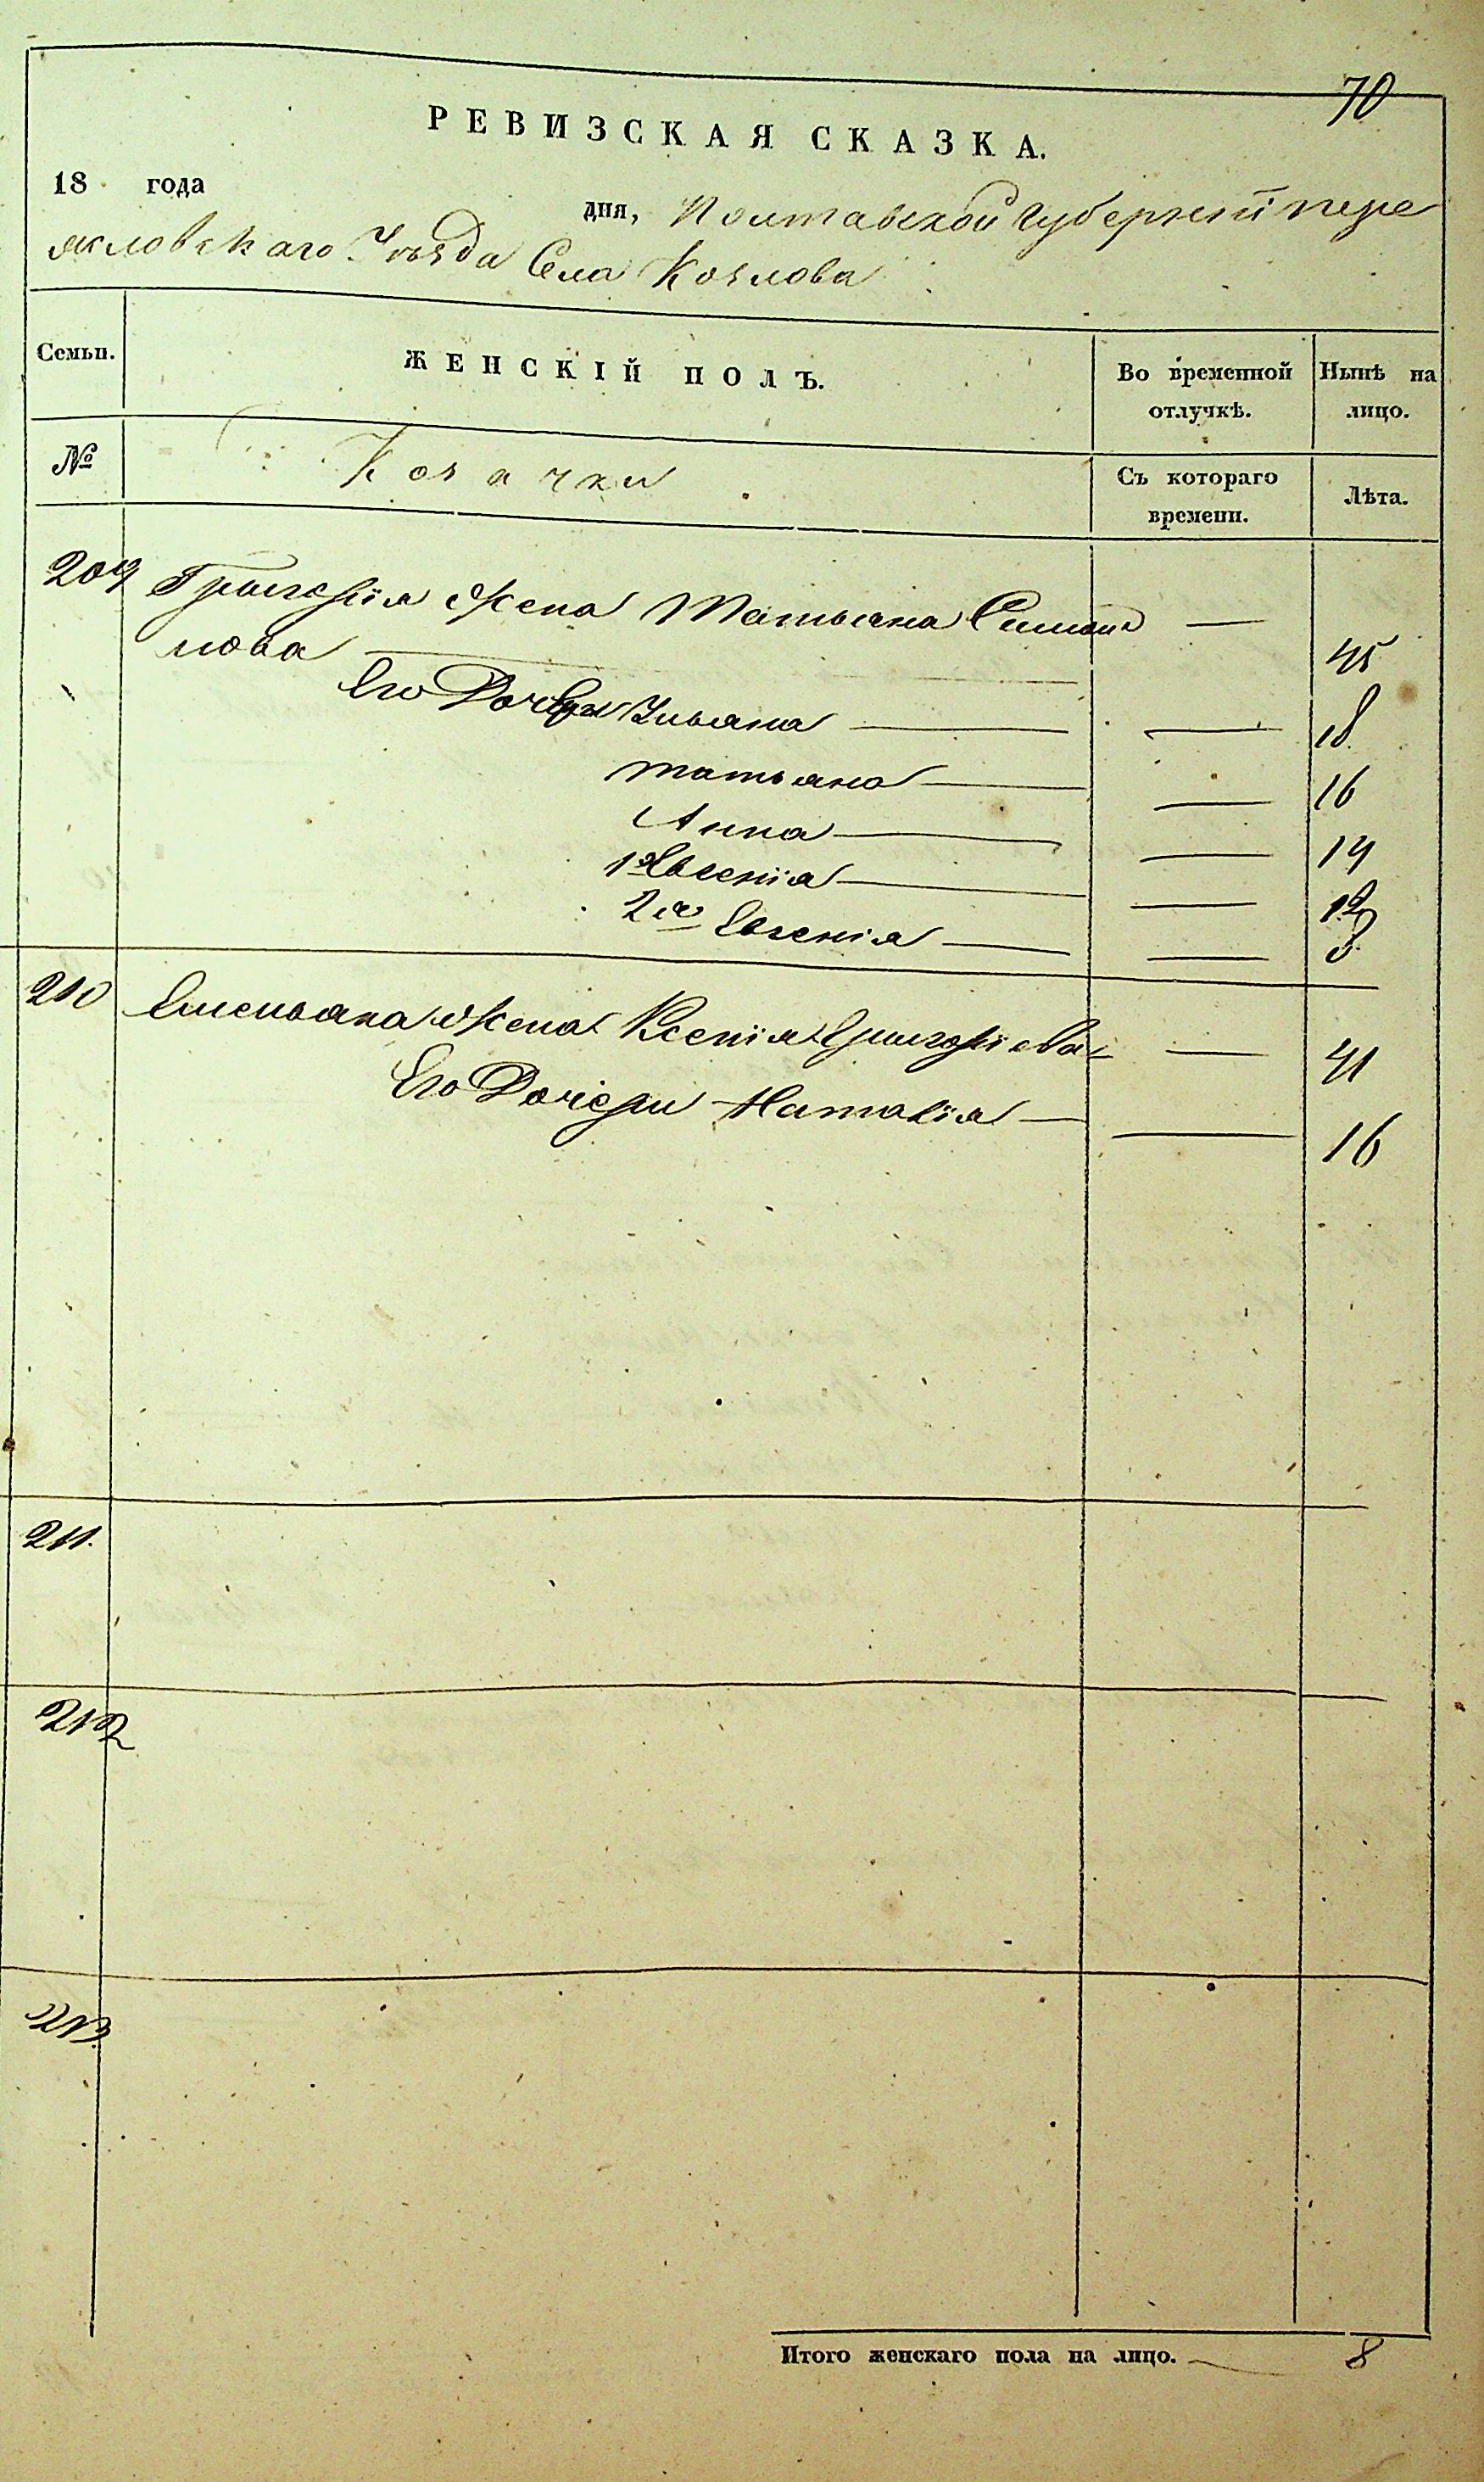 70
РЕВИЗСКАЯ СКАЗКА.
18 года дня, Полтавской Губерніи пере
яславскаго Уѣзда Села Козлова
Семьи. ЖЕНСКІЙ ПОЛЪ. Во временной отлучкѣ. Нынѣ на лицо.
№ Козачки Съ котораго времени. Лѣта.
209 Григорія Жена Татьяна Симо
нова — 45
Его Дочери Ульяна — 18
Татьяна — 16
Анна — 14
1я Евгенія — 12
2я Евгенія — 8
210 Емельяна Жена Ксенія Григоріева — 41
Его Дочери Наталія — 16
211.
212
213.
Итого женскаго пола на лицо. 8